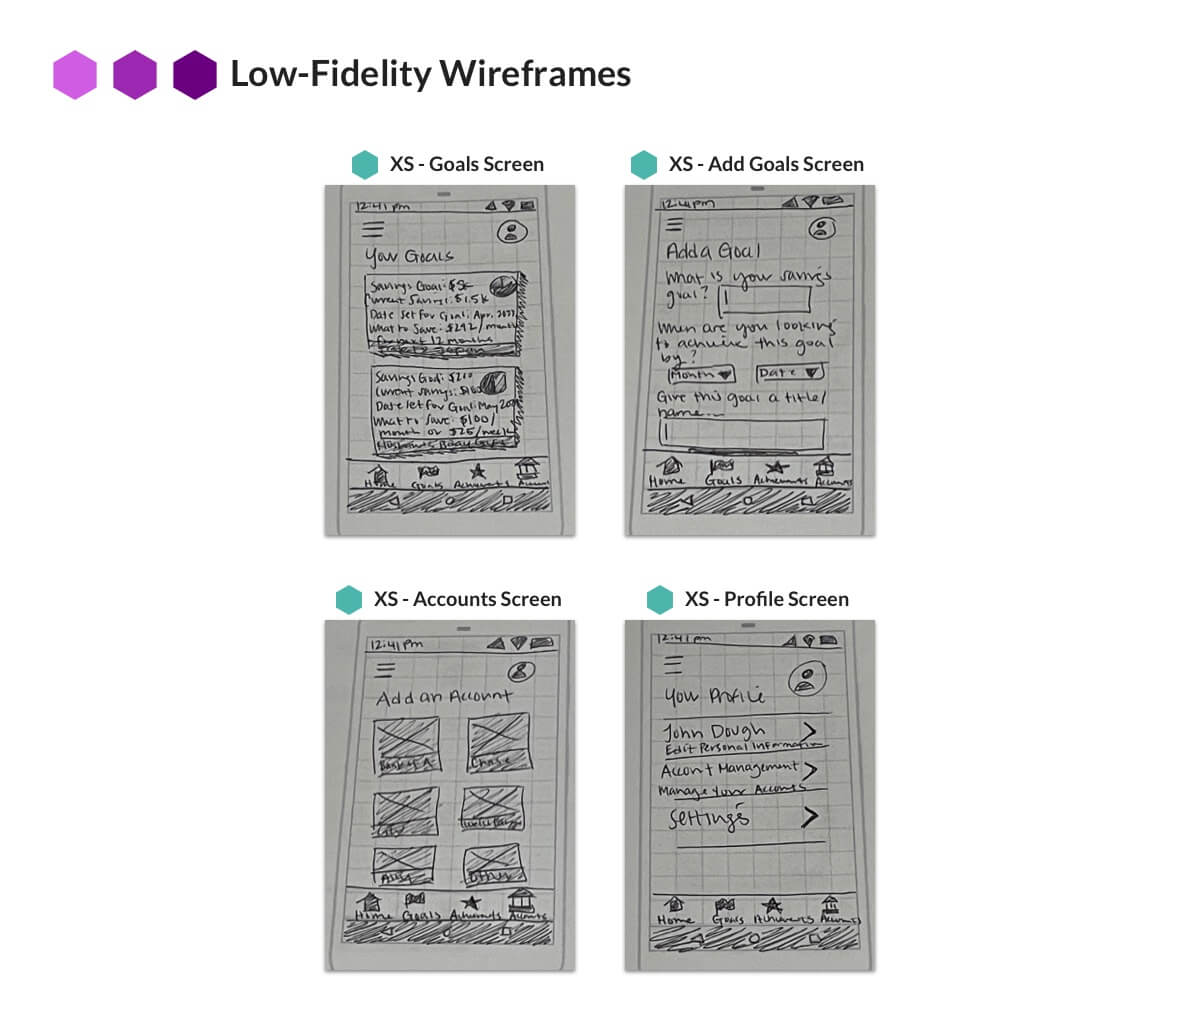 Low-Fidelity Wireframes
XS - Goals Screen
12:41 pm
Your Goals
Savings Goal: $5k
Current Savings: $1.5k
Date Set for Goal: Apr.
What to Save: $292/month
for next 12 months
Savings Goal:
Current Savings:
Date Set for Goal: May
What to Save: $100/
month or $25/week
Husband's Bday Gift
Home Goals Achievements Accounts
XS - Add Goals Screen
12:41pm
Add a Goal
What is your savings
goal?
When are you looking
to achieve this goal
by?
Month Date
Give this goal a title/
name...
Home Goals Accounts
XS - Accounts Screen
12:41 pm
Add an Account
Bank of A Chase
Citi Wells Fargo
Ally Other
Home Goals Accounts
XS - Profile Screen
12:41 pm
Your Profile
John Dough
Edit Personal Information
Account Management
Manage Your Accounts
Settings
Home Goals